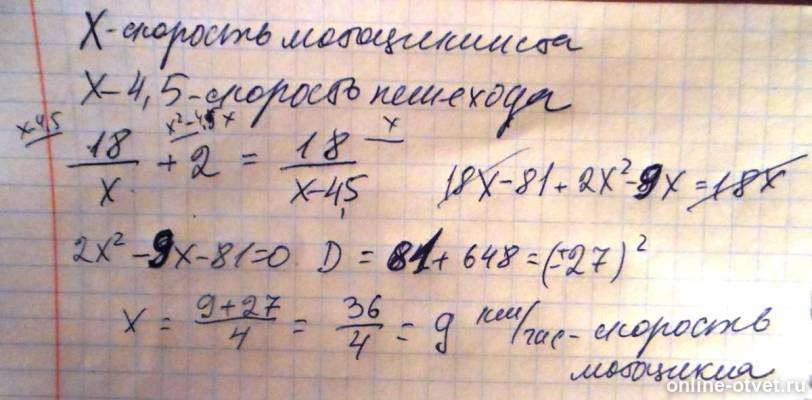 X - скорость мотоциклиста
X - 4,5 - скорость пешехода
x-4,5 x²-4,5x x
18/X + 2 = 18/X-4,5
18X - 81 + 2X² - 9X = 18X
2X² - 9X - 81 = 0 D = 81 + 648 = (±27)²
X = 9+27/4 = 36/4 = 9 км/час - скорость
мотоцикла
online-otvet.ru